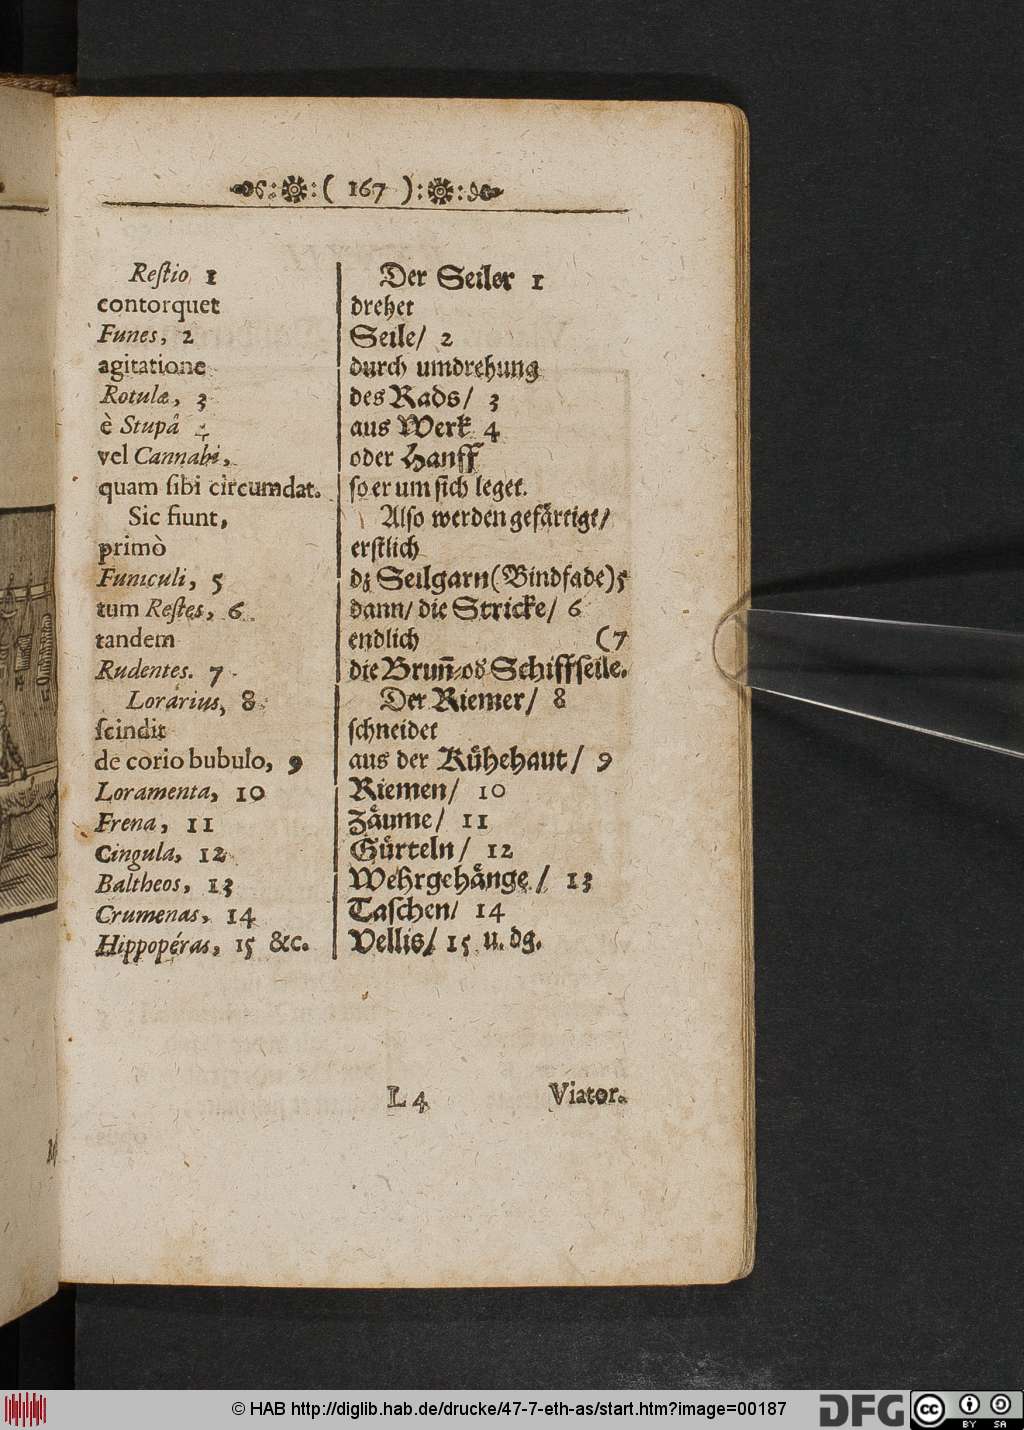 ( 167 )
Reſtio 1
contorquet
Funes, 2
agitatione
Rotulæ, 3
è Stupâ 4
vel Cannabi,
quam ſibi circumdat.
Sic fiunt,
primò
Funiculi, 5
tum Reſtes, 6
tandem
Rudentes. 7
Lorárius, 8
ſcindit
de corio bubulo, 9
Loramenta, 10
Frena, 11
Cingula, 12
Baltheos, 13
Crumenas, 14
Hippopéras, 15 &c.
Der Seiler 1
drehet
Seile/ 2
durch umdrehung
des Rads/ 3
aus Werk 4
oder Hanff
ſo er um ſich leget.
Alſo werden gefärtigt/
erſtlich
dz Seilgarn (Bindfade) 5
dann/ die Stricke/ 6
endlich (7
die Brun̄-od' Schiffſeile.
Der Riemer/ 8
ſchneidet
aus der Kühehaut/ 9
Riemen/ 10
Zäume/ 11
Gürteln/ 12
Wehrgehänge/ 13
Taſchen/ 14
Vellis/ 15 u. dg.
L 4 Viator.
© HAB http://diglib.hab.de/drucke/47-7-eth-as/start.htm?image=00187
DFG
cc BY SA